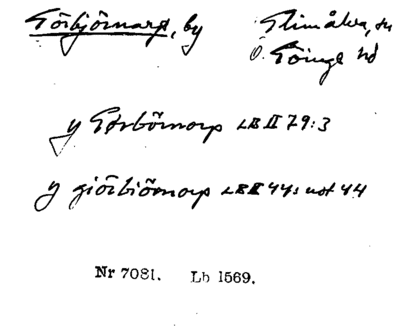 Görbjörnarp, by Glimåkra, sn
Ö. Göinge hd
y Gørbörnorp LB II 79:3
y giörbiörnorp LB II 44: not 44
Nr 7081. Lb 1569.